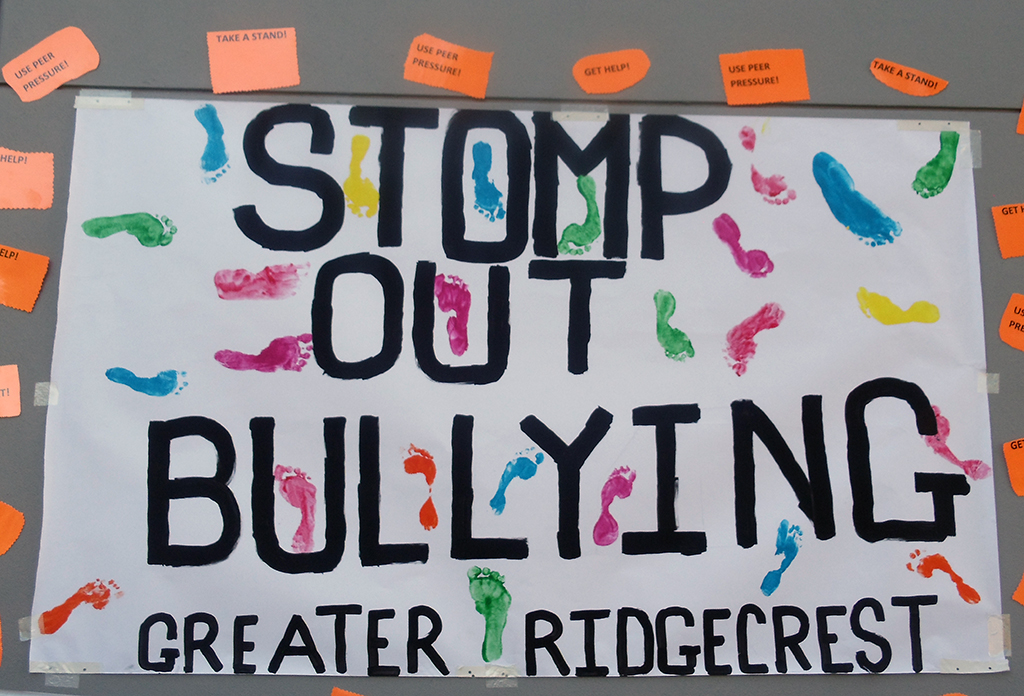 USE PEER
PRESSURE!
TAKE A STAND!
USE PEER
PRESSURE!
GET HELP!
USE PEER
PRESSURE!
TAKE A STAND!
HELP!
GET H
STOMP
OUT
BULLYING
GREATER RIDGECREST